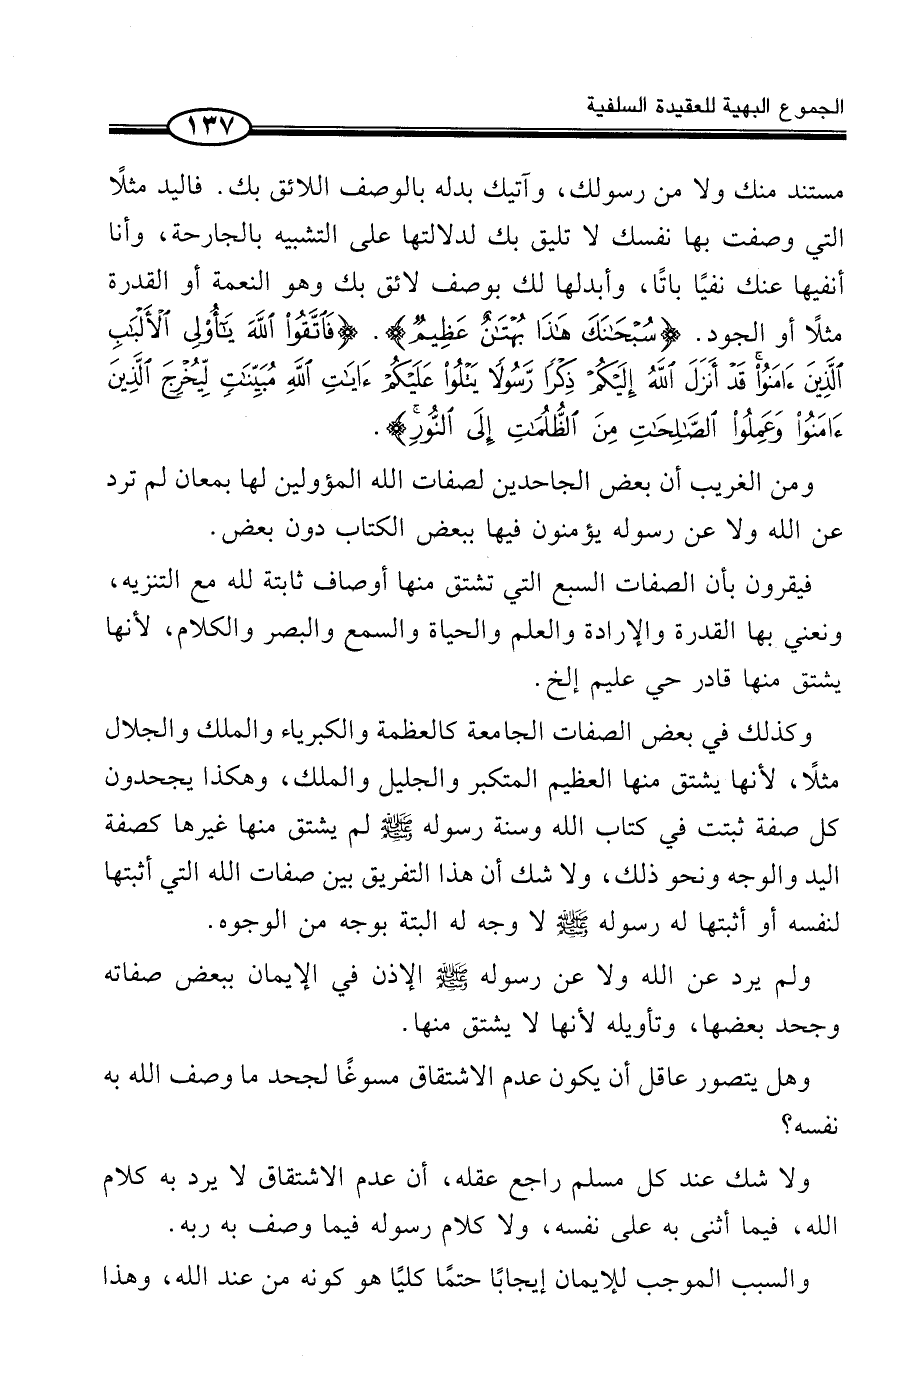 الجموع البهية للعقيدة السلفية
١٣٧
مستند منك ولا من رسولك، وآتيك بدله بالوصف اللائق بك. فاليد مثلًا
التي وصفت بها نفسك لا تليق بك لدلالتها على التشبيه بالجارحة، وأنا
أنفيها عنك نفيًا باتًا، وأبدلها لك بوصف لائق بك وهو النعمة أو القدرة
مثلًا أو الجود. ﴿سُبْحَٰنَكَ هَٰذَا بُهْتَٰنٌ عَظِيمٌ﴾. ﴿فَٱتَّقُوا۟ ٱللَّهَ يَٰٓأُو۟لِى ٱلْأَلْبَٰبِ
ٱلَّذِينَ ءَامَنُوا۟ۚ قَدْ أَنزَلَ ٱللَّهُ إِلَيْكُمْ ذِكْرًا رَّسُولًا يَتْلُوا۟ عَلَيْكُمْ ءَايَٰتِ ٱللَّهِ مُبَيِّنَٰتٍ لِّيُخْرِجَ ٱلَّذِينَ
ءَامَنُوا۟ وَعَمِلُوا۟ ٱلصَّٰلِحَٰتِ مِنَ ٱلظُّلُمَٰتِ إِلَى ٱلنُّورِۚ﴾.
ومن الغريب أن بعض الجاحدين لصفات الله المؤولين لها بمعان لم ترد
عن الله ولا عن رسوله يؤمنون فيها ببعض الكتاب دون بعض.
فيقرون بأن الصفات السبع التي تشتق منها أوصاف ثابتة لله مع التنزيه،
ونعني بها القدرة والإرادة والعلم والحياة والسمع والبصر والكلام، لأنها
يشتق منها قادر حي عليم إلخ.
وكذلك في بعض الصفات الجامعة كالعظمة والكبرياء والملك والجلال
مثلًا، لأنها يشتق منها العظيم المتكبر والجليل والملك، وهكذا يجحدون
كل صفة ثبتت في كتاب الله وسنة رسوله ﷺ لم يشتق منها غيرها كصفة
اليد والوجه ونحو ذلك، ولا شك أن هذا التفريق بين صفات الله التي أثبتها
لنفسه أو أثبتها له رسوله ﷺ لا وجه له البتة بوجه من الوجوه.
ولم يرد عن الله ولا عن رسوله ﷺ الإذن في الإيمان ببعض صفاته
وجحد بعضها، وتأويله لأنها لا يشتق منها.
وهل يتصور عاقل أن يكون عدم الاشتقاق مسوغًا لجحد ما وصف الله به
نفسه؟
ولا شك عند كل مسلم راجع عقله، أن عدم الاشتقاق لا يرد به كلام
الله، فيما أثنى به على نفسه، ولا كلام رسوله فيما وصف به ربه.
والسبب الموجب للإيمان إيجابًا حتمًا كليًا هو كونه من عند الله، وهذا